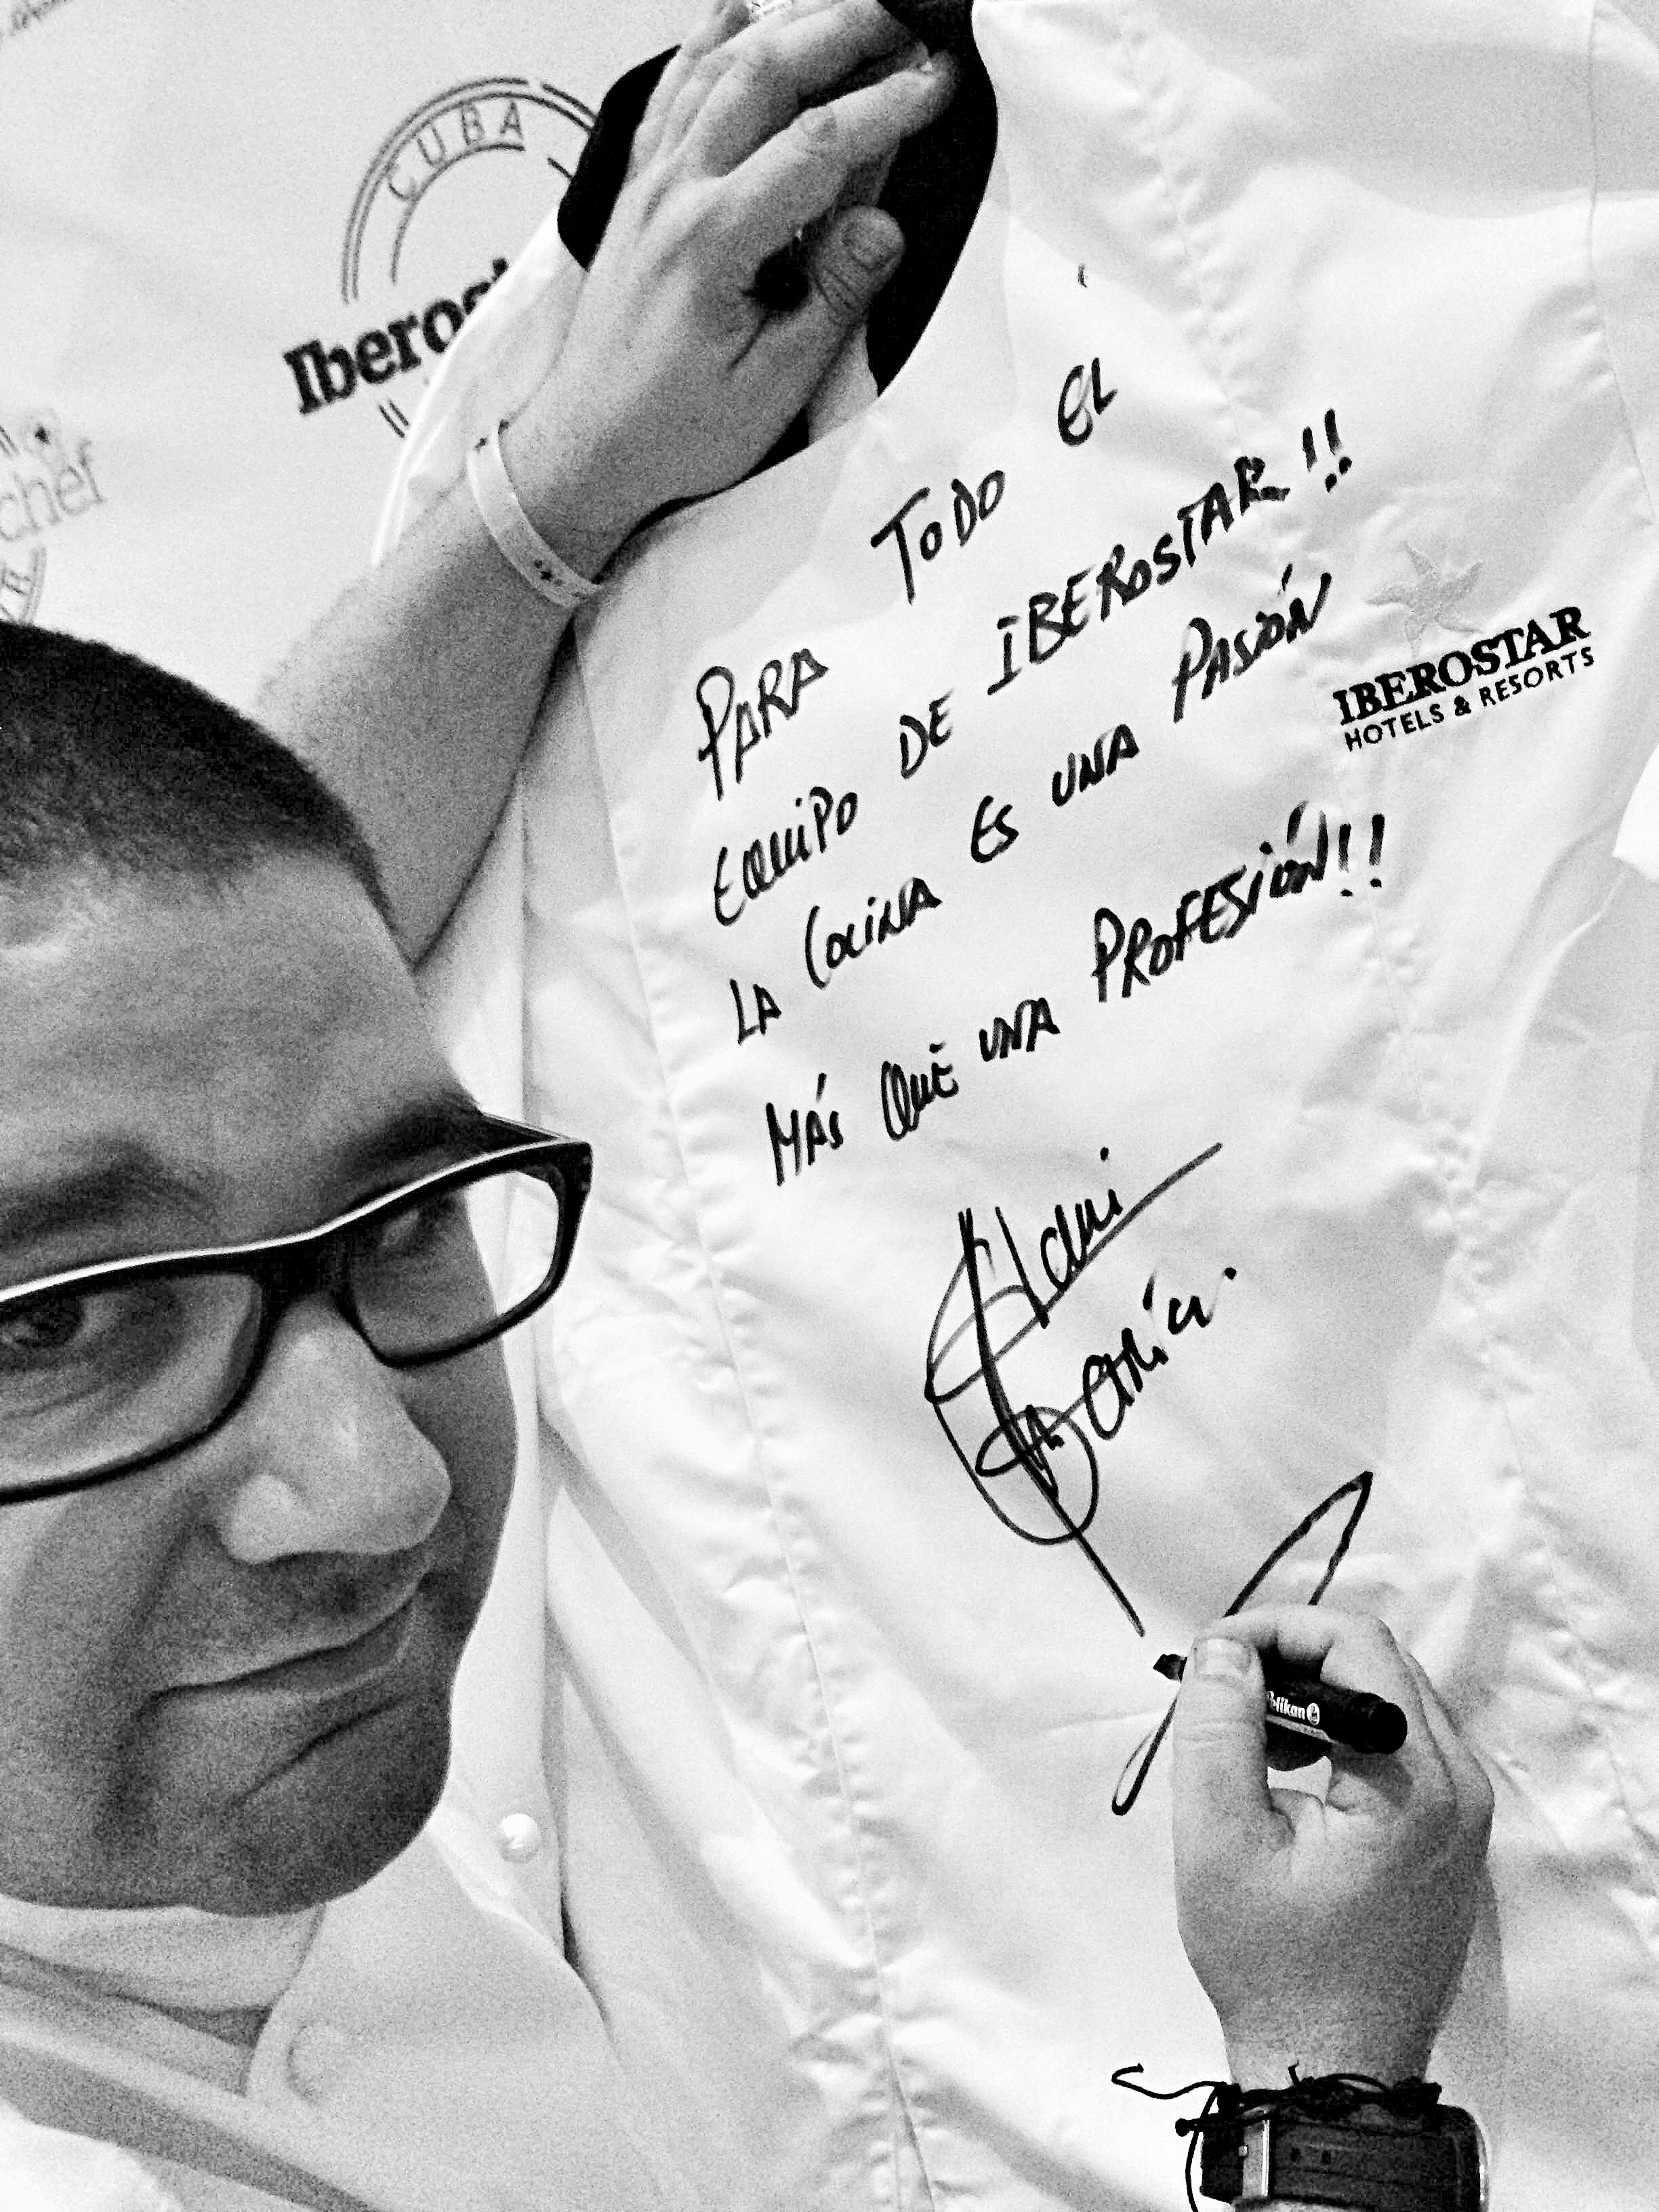 CUBA
Iberos
chef
PARA TODO EL
EQUIPO DE IBEROSTAR!!
LA COCINA ES UNA PASIÓN
MÁS QUE UNA PROFESIÓN!!
IBEROSTAR
HOTELS & RESORTS
García
elikan